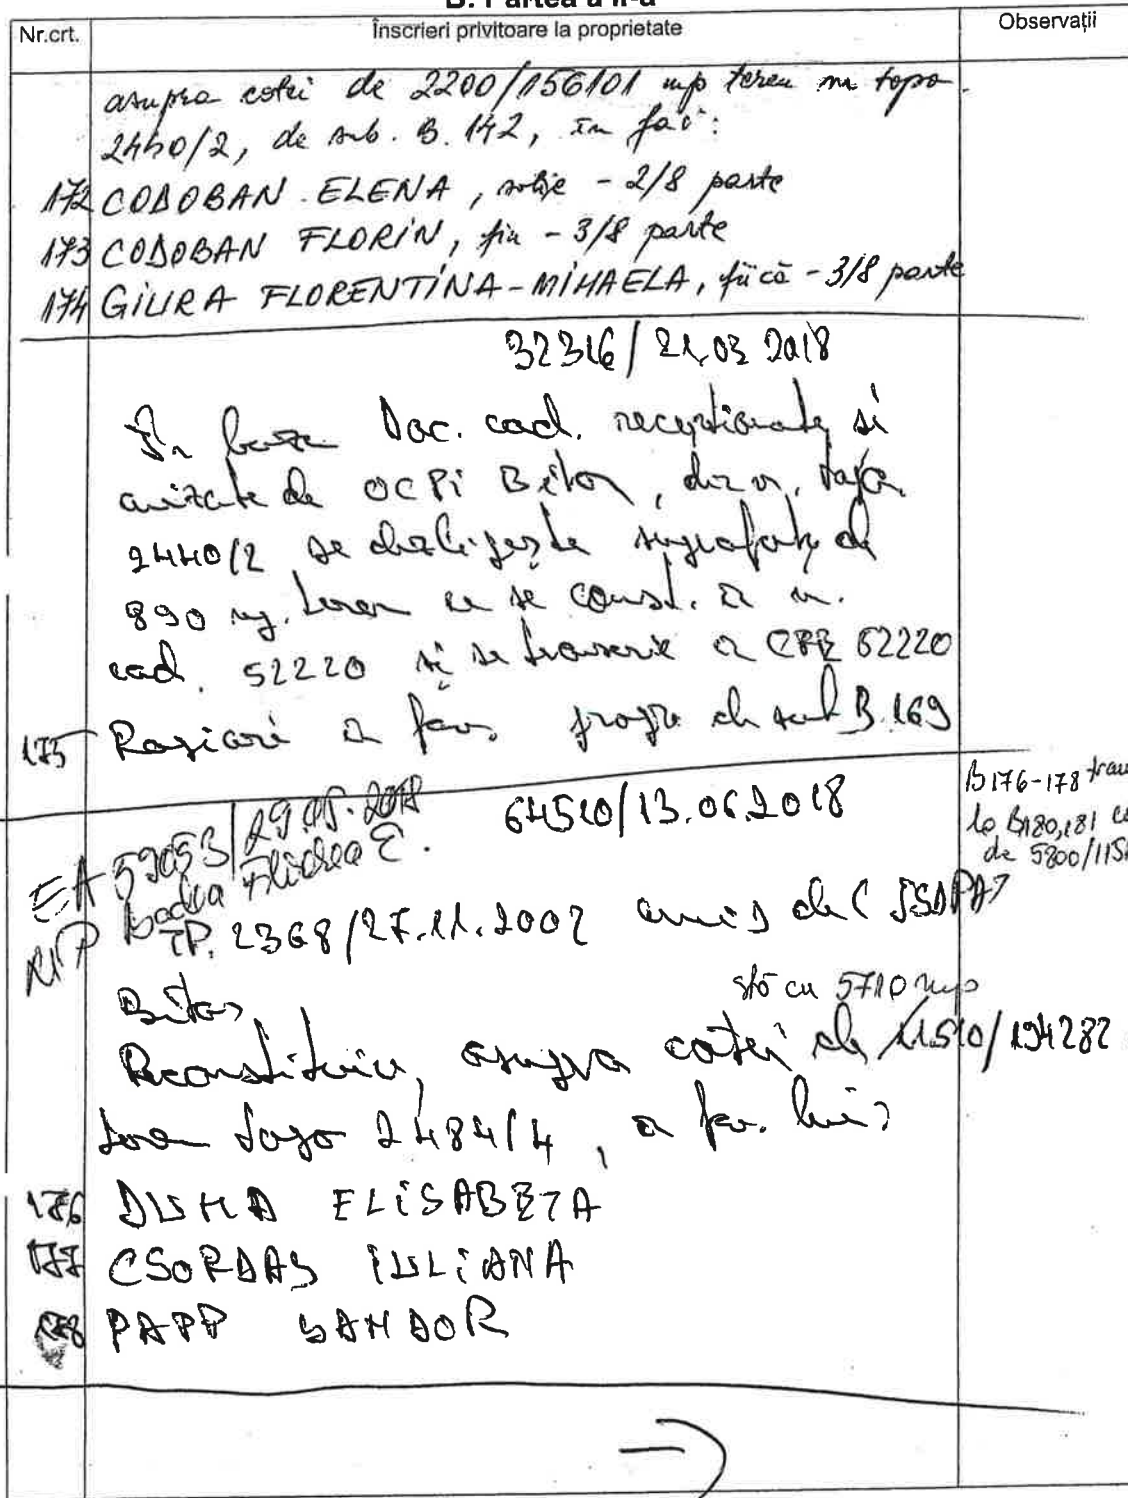 B. Partea a II-a
Nr.crt. Înscrieri privitoare la proprietate Observații
asupra cotei de 2200/156101 mp teren nr topo
2440/2, de sub. B. 142, în fav:
172 CODOBAN ELENA, soție - 2/8 parte
173 CODOBAN FLORIN, fiu - 3/8 parte
174 GIURA FLORENTINA-MIHAELA, fiică - 3/8 parte
32316/21.03.2018
În baza Doc. cad. recepționate și
avizate de OCPI Bihor, din nr. topo
2440/2 se dezlipește suprafața de
890 mp. teren ce se const. în nr.
cad. 52220 și se transcrie în 52220
175 în fav. propr. de sub B.169
64510/13.06.2018
B176-178
la B180,181
de 5800/115
EA 59053/29.05.2018
TP. 2368/27.11.2002 emis de CJSDPAT
Bihor
stă cu 5710 mp
Reconstituire, asupra cotei de 11510/194282
teren topo 2484/4, în fav. lui:
176 DUMA ELISABETA
177 CSORDAS IULIANA
178 PAPP SANDOR